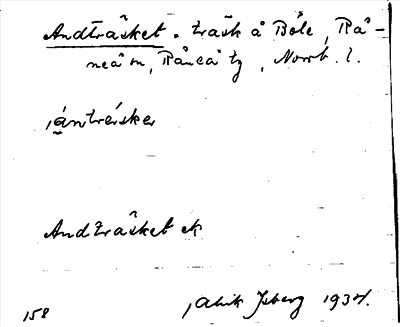 Andträsket. träsk å Böle, Rå-
neå sn, Råneå tg, Norrb. l.
Andträsket ek
158 Alrik Isberg 1934.